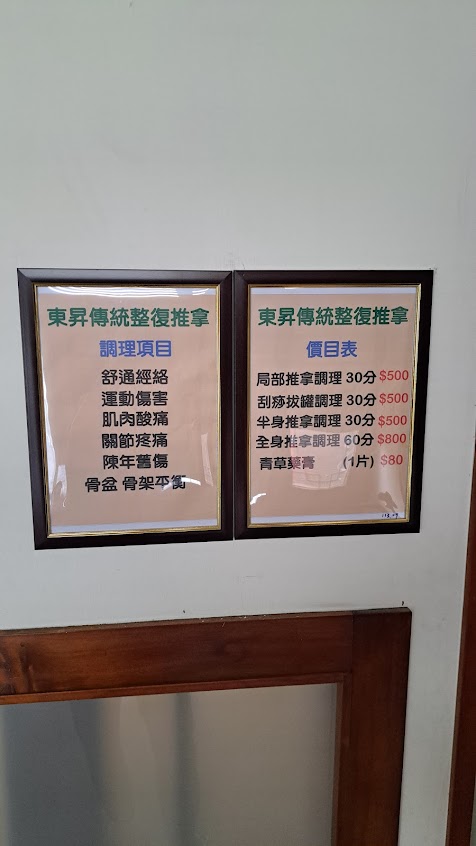 東昇傳統整復推拿
調理項目
舒通經絡
運動傷害
肌肉酸痛
關節疼痛
陳年舊傷
骨盆 骨架平衡
東昇傳統整復推拿
價目表
局部推拿調理 30分 $500
刮痧拔罐調理 30分 $500
半身推拿調理 30分 $500
全身推拿調理 60分 $800
青草藥膏 (1片) $80